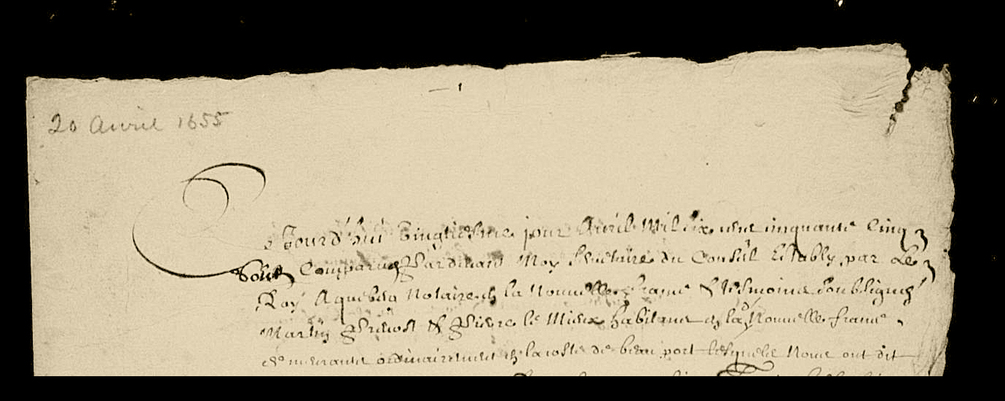 20 Avril 1655
Ce Jourd'hui vingtiesme jour d'Avril Mil six cens cinquante cinq
Sont Comparus Pardevant Moy Secretaire du Conseil Estably par Le
Roy A quebec Notaire en la Nouvelle france & tesmoins soubsignés
Martin prevost & pierre le Mieux habitans en la Nouvelle france
demeurans ordinairement en la coste de beau port lesquels Nous ont dit